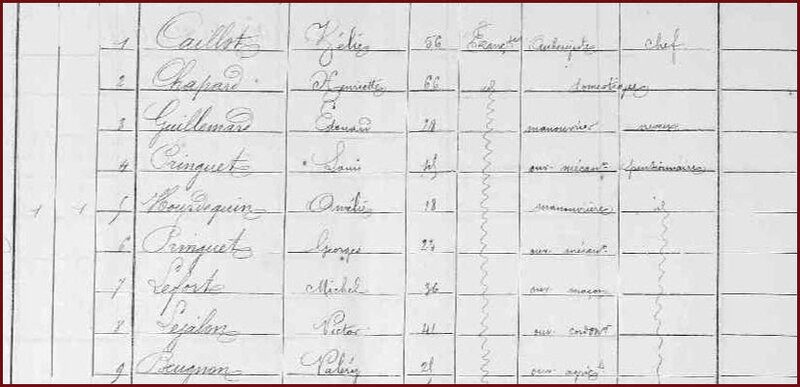 1 Caillot Zélie 56 Franç^se Aubergiste chef
2 Chapard Henriette 66 id domestique
3 Guillemard Edouard manouvrier neveu
4 Pringuet Louis ouv. mécan^n pensionnaire
1 1 5 Hourdequin Amélie 18 manouvrière id
6 Pringuet Georges 23 ouv. mécan^n
7 Lefort Michel 36 ouv. maçon
8 Lejalm Victor 41 ouv. cordon^r
9 Beugnon Valéry ouv. agric^le